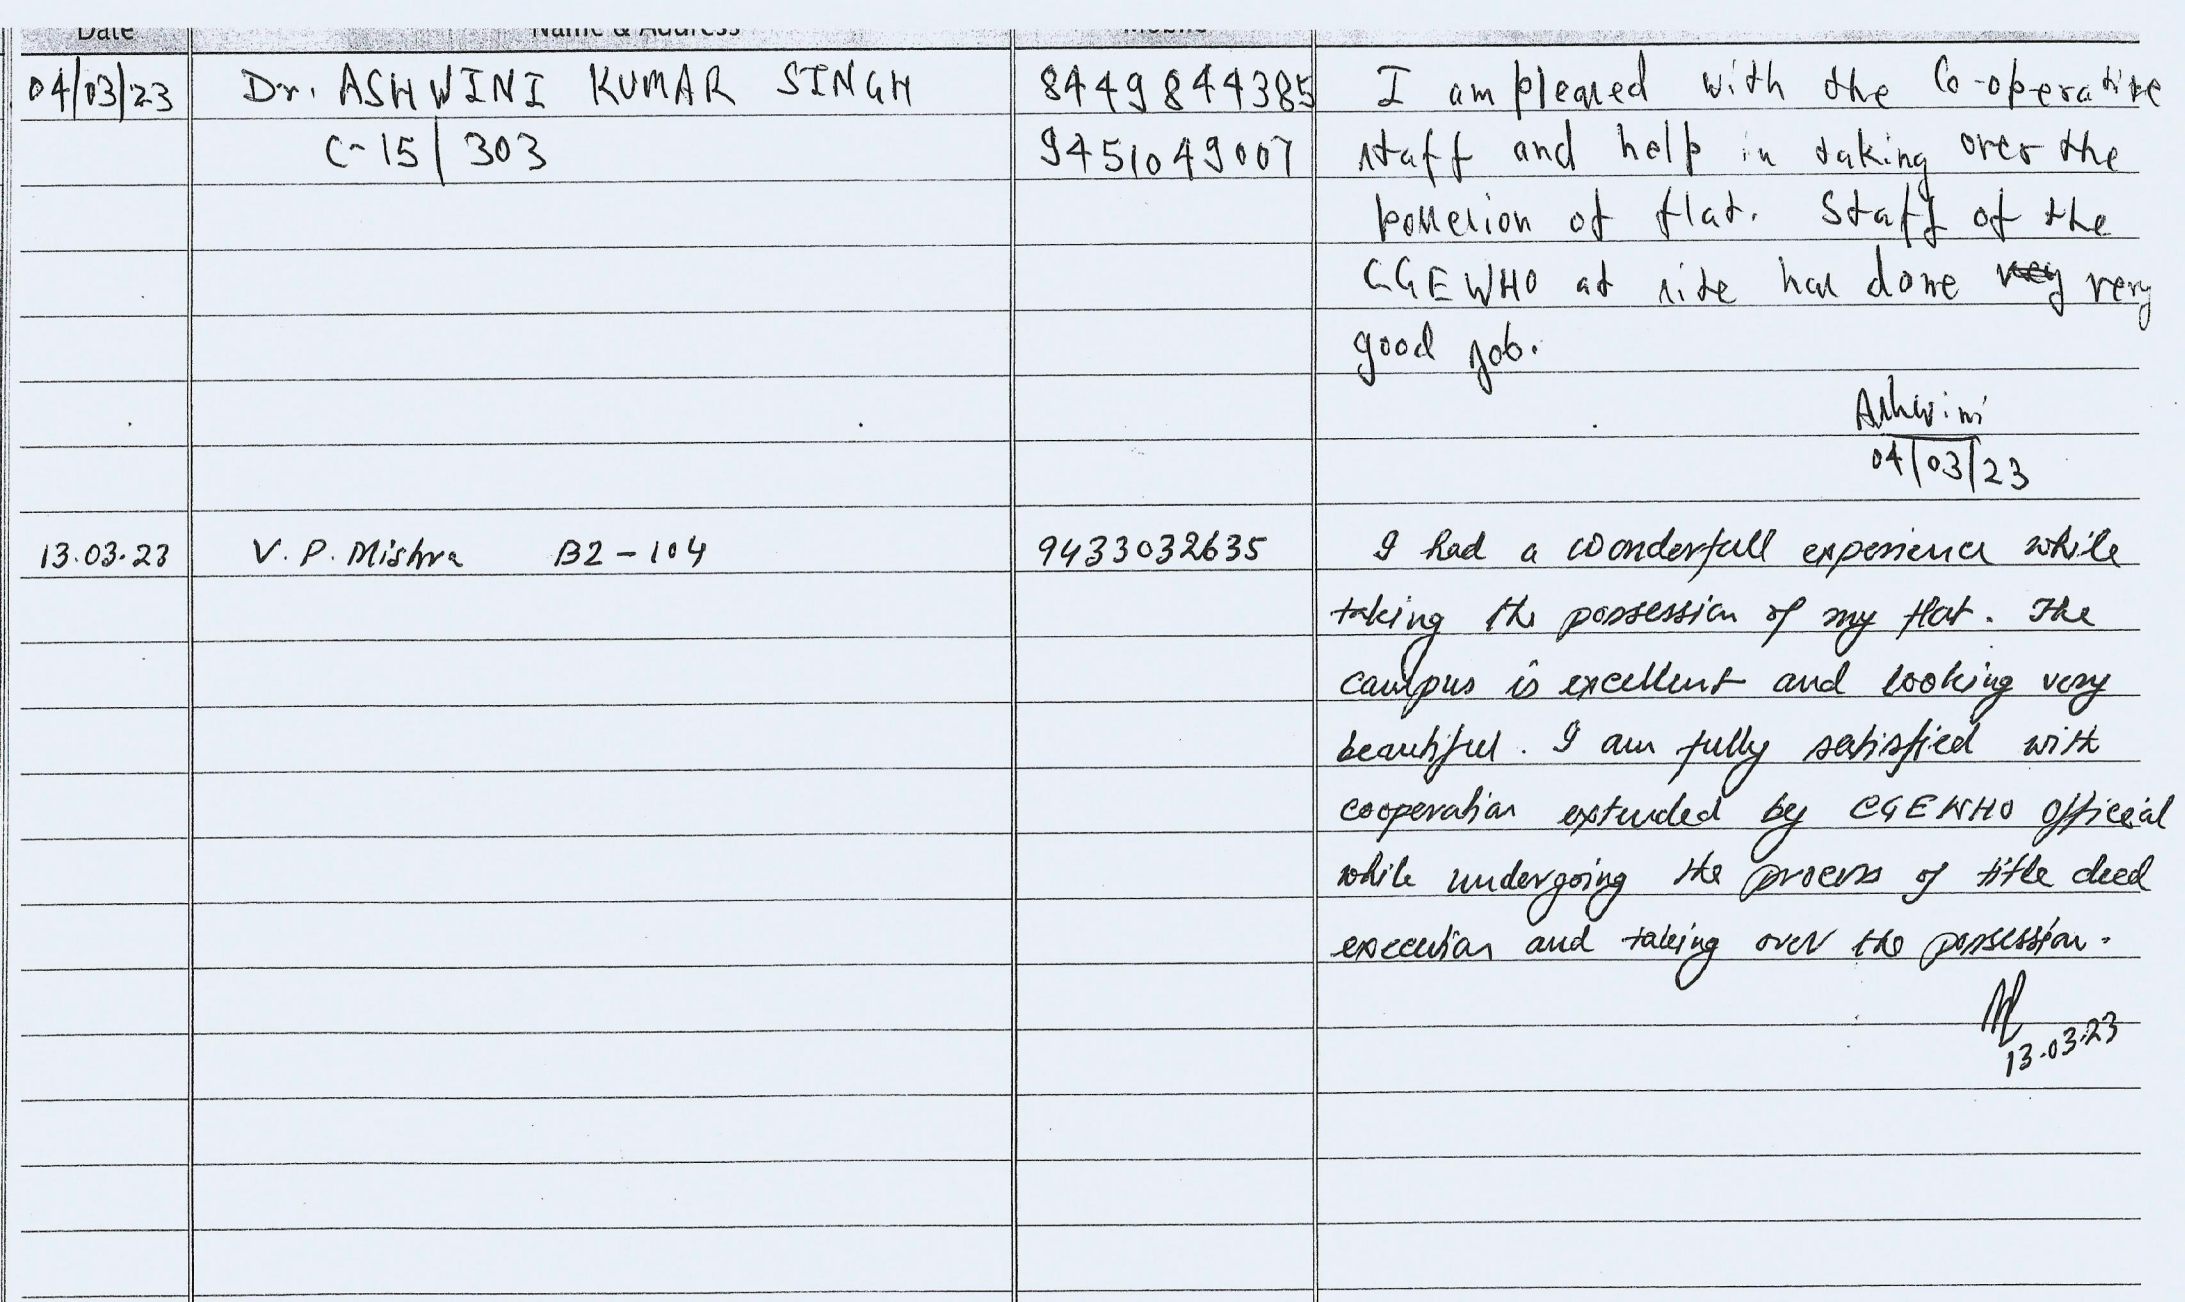 Date Name & Address Mobile
04/03/23 Dr. ASHWINI KUMAR SINGH 8449844385 I am pleased with the Co-operative
C-15/303 9451049007 staff and help in taking over the
possession of flat. Staff of the
CGEWHO at site has done very very
good job.
Ashwini
04/03/23
13.03.23 V. P. Mishra B2-104 9433032635 I had a wonderfull experience while
taking the possession of my flat. The
campus is excellent and looking very
beautiful. I am fully satisfied with
cooperation extended by CGEWHO official
while undergoing the process of title deed
execution and taking over the possession.
13.03.23